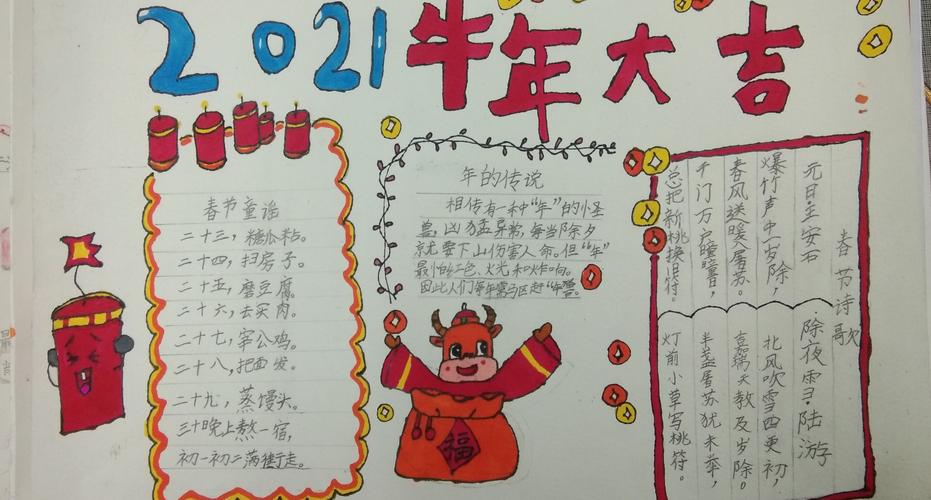 2021牛年大吉
春节童谣
二十三，糖瓜粘。
二十四，扫房子。
二十五，磨豆腐。
二十六，去买肉。
二十七，宰公鸡。
二十八，把面发。
二十九，蒸馒头。
三十晚上熬一宿，
初一初二满街走。
年的传说
相传有一种“年”的怪
兽，凶猛异常，每当除夕
就要下山伤害人命。但“年”
最怕红色、火光和炸响。
因此人们每年驱赶“年兽”。
福
春节诗歌
元日·王安石
爆竹声中一岁除，
春风送暖入屠苏。
千门万户曈曈日，
总把新桃换旧符。
除夜雪·陆游
北风吹雪四更初，
嘉瑞天教及岁除。
半盏屠苏犹未举，
灯前小草写桃符。